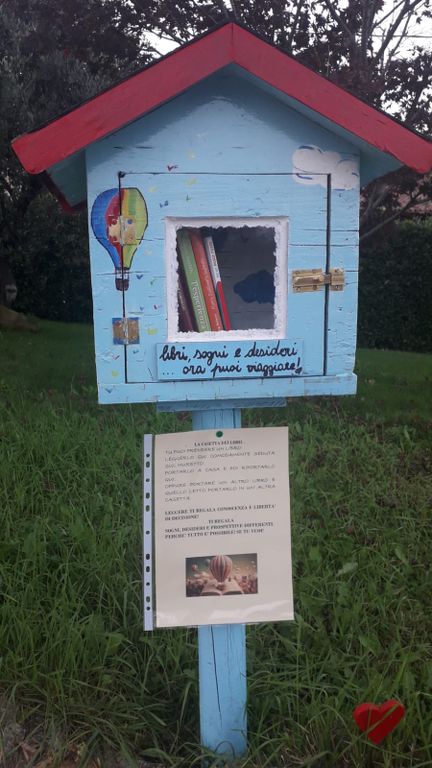 libri, sogni e desideri
... ora puoi viaggiare!
LA CASETTA DEI LIBRI
TU PUOI PRENDERE UN LIBRO
LEGGERLO QUI COMODAMENTE SEDUTA
SUL MURETTO
PORTARLO A CASA E POI RIPORTARLO
QUI.
OPPURE PORTARE UN ALTRO LIBRO E
QUELLO LETTO PORTARLO IN UN'ALTRA
CASETTA.
LEGGERE TI REGALA CONOSCENZA E LIBERTA'
DI DECISIONE!
TI REGALA
SOGNI, DESIDERI E PROSPETTIVE DIFFERENTI.
PERCHE' TUTTO E' POSSIBILE! SE TU VUOI!